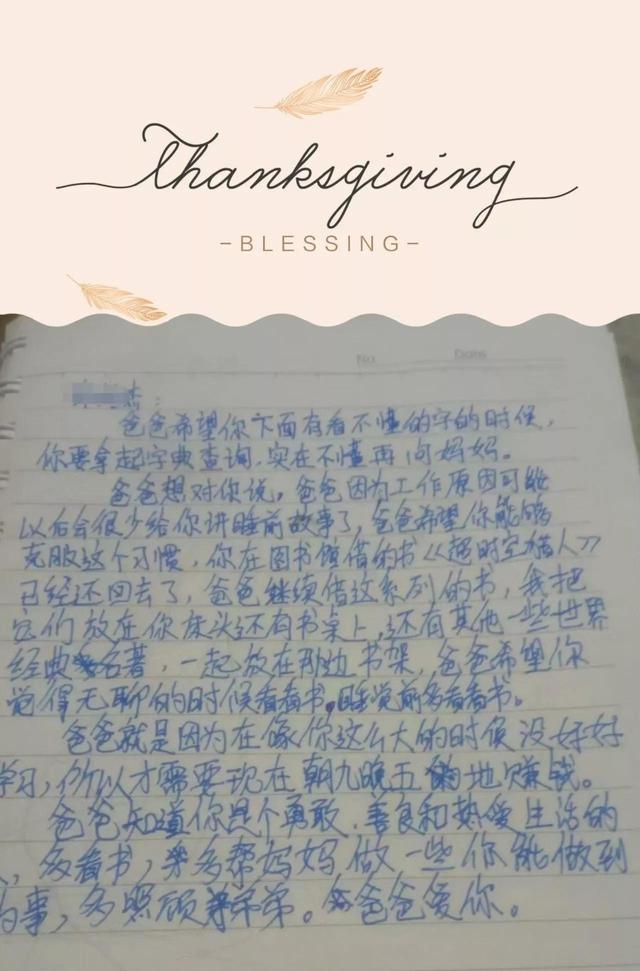 Thanksgiving
-BLESSING-
No
Date
杰：
爸爸希望你下面有看不懂的字的时候，
你要拿起字典查询，实在不懂再问妈妈。
爸爸想对你说，爸爸因为工作原因可能
以后会很少给你讲睡前故事了，爸爸希望你能够
克服这个习惯，你在图书馆借的书《超时空猎人》
已经还回去了，爸爸继续借这系列的书，我把
它们放在你床头还有书桌上，还有其他一些世界
经典名著，一起放在那边书架，爸爸希望你
觉得无聊的时候看看书，睡觉前多看看书。
爸爸就是因为在像你这么大的时候没好好
学习，所以才需要现在朝九晚五的地赚钱。
爸爸知道你是个勇敢、善良和热爱生活的
，多看书，多帮妈妈做一些你能做到
的事，多照顾弟弟。爸爸爱你。